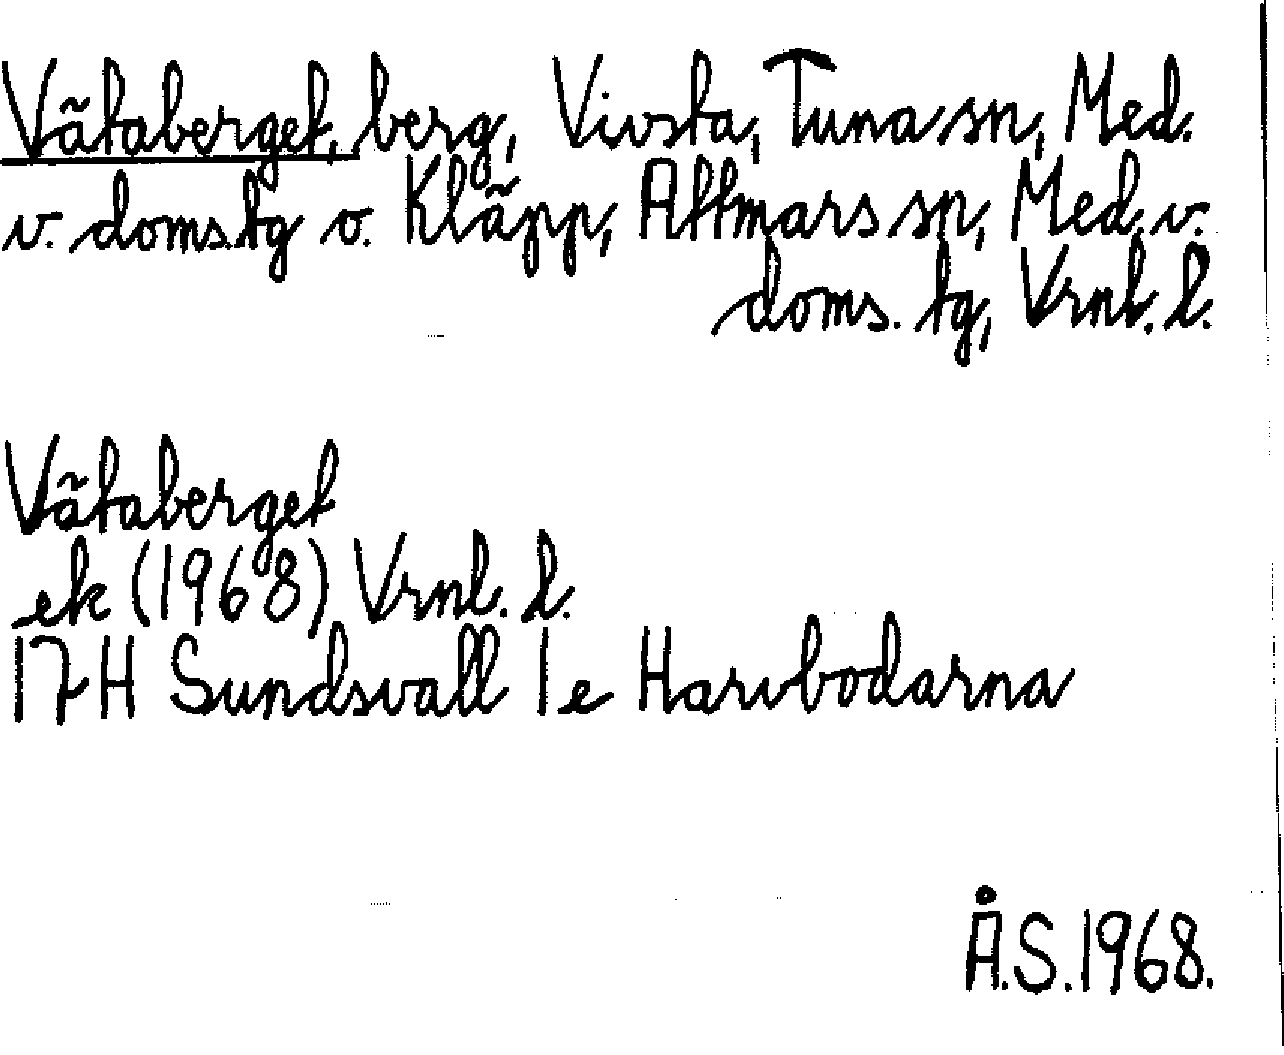 Vätaberget, berg, Vivsta, Tuna sn, Med.
v. doms.tg o. Kläpp, Attmars sn, Med. v.
doms. tg, Vrnl. l.
Vätaberget
ek (1968) Vrnl. l.
17H Sundsvall 1e Harvbodarna
Å.S. 1968.